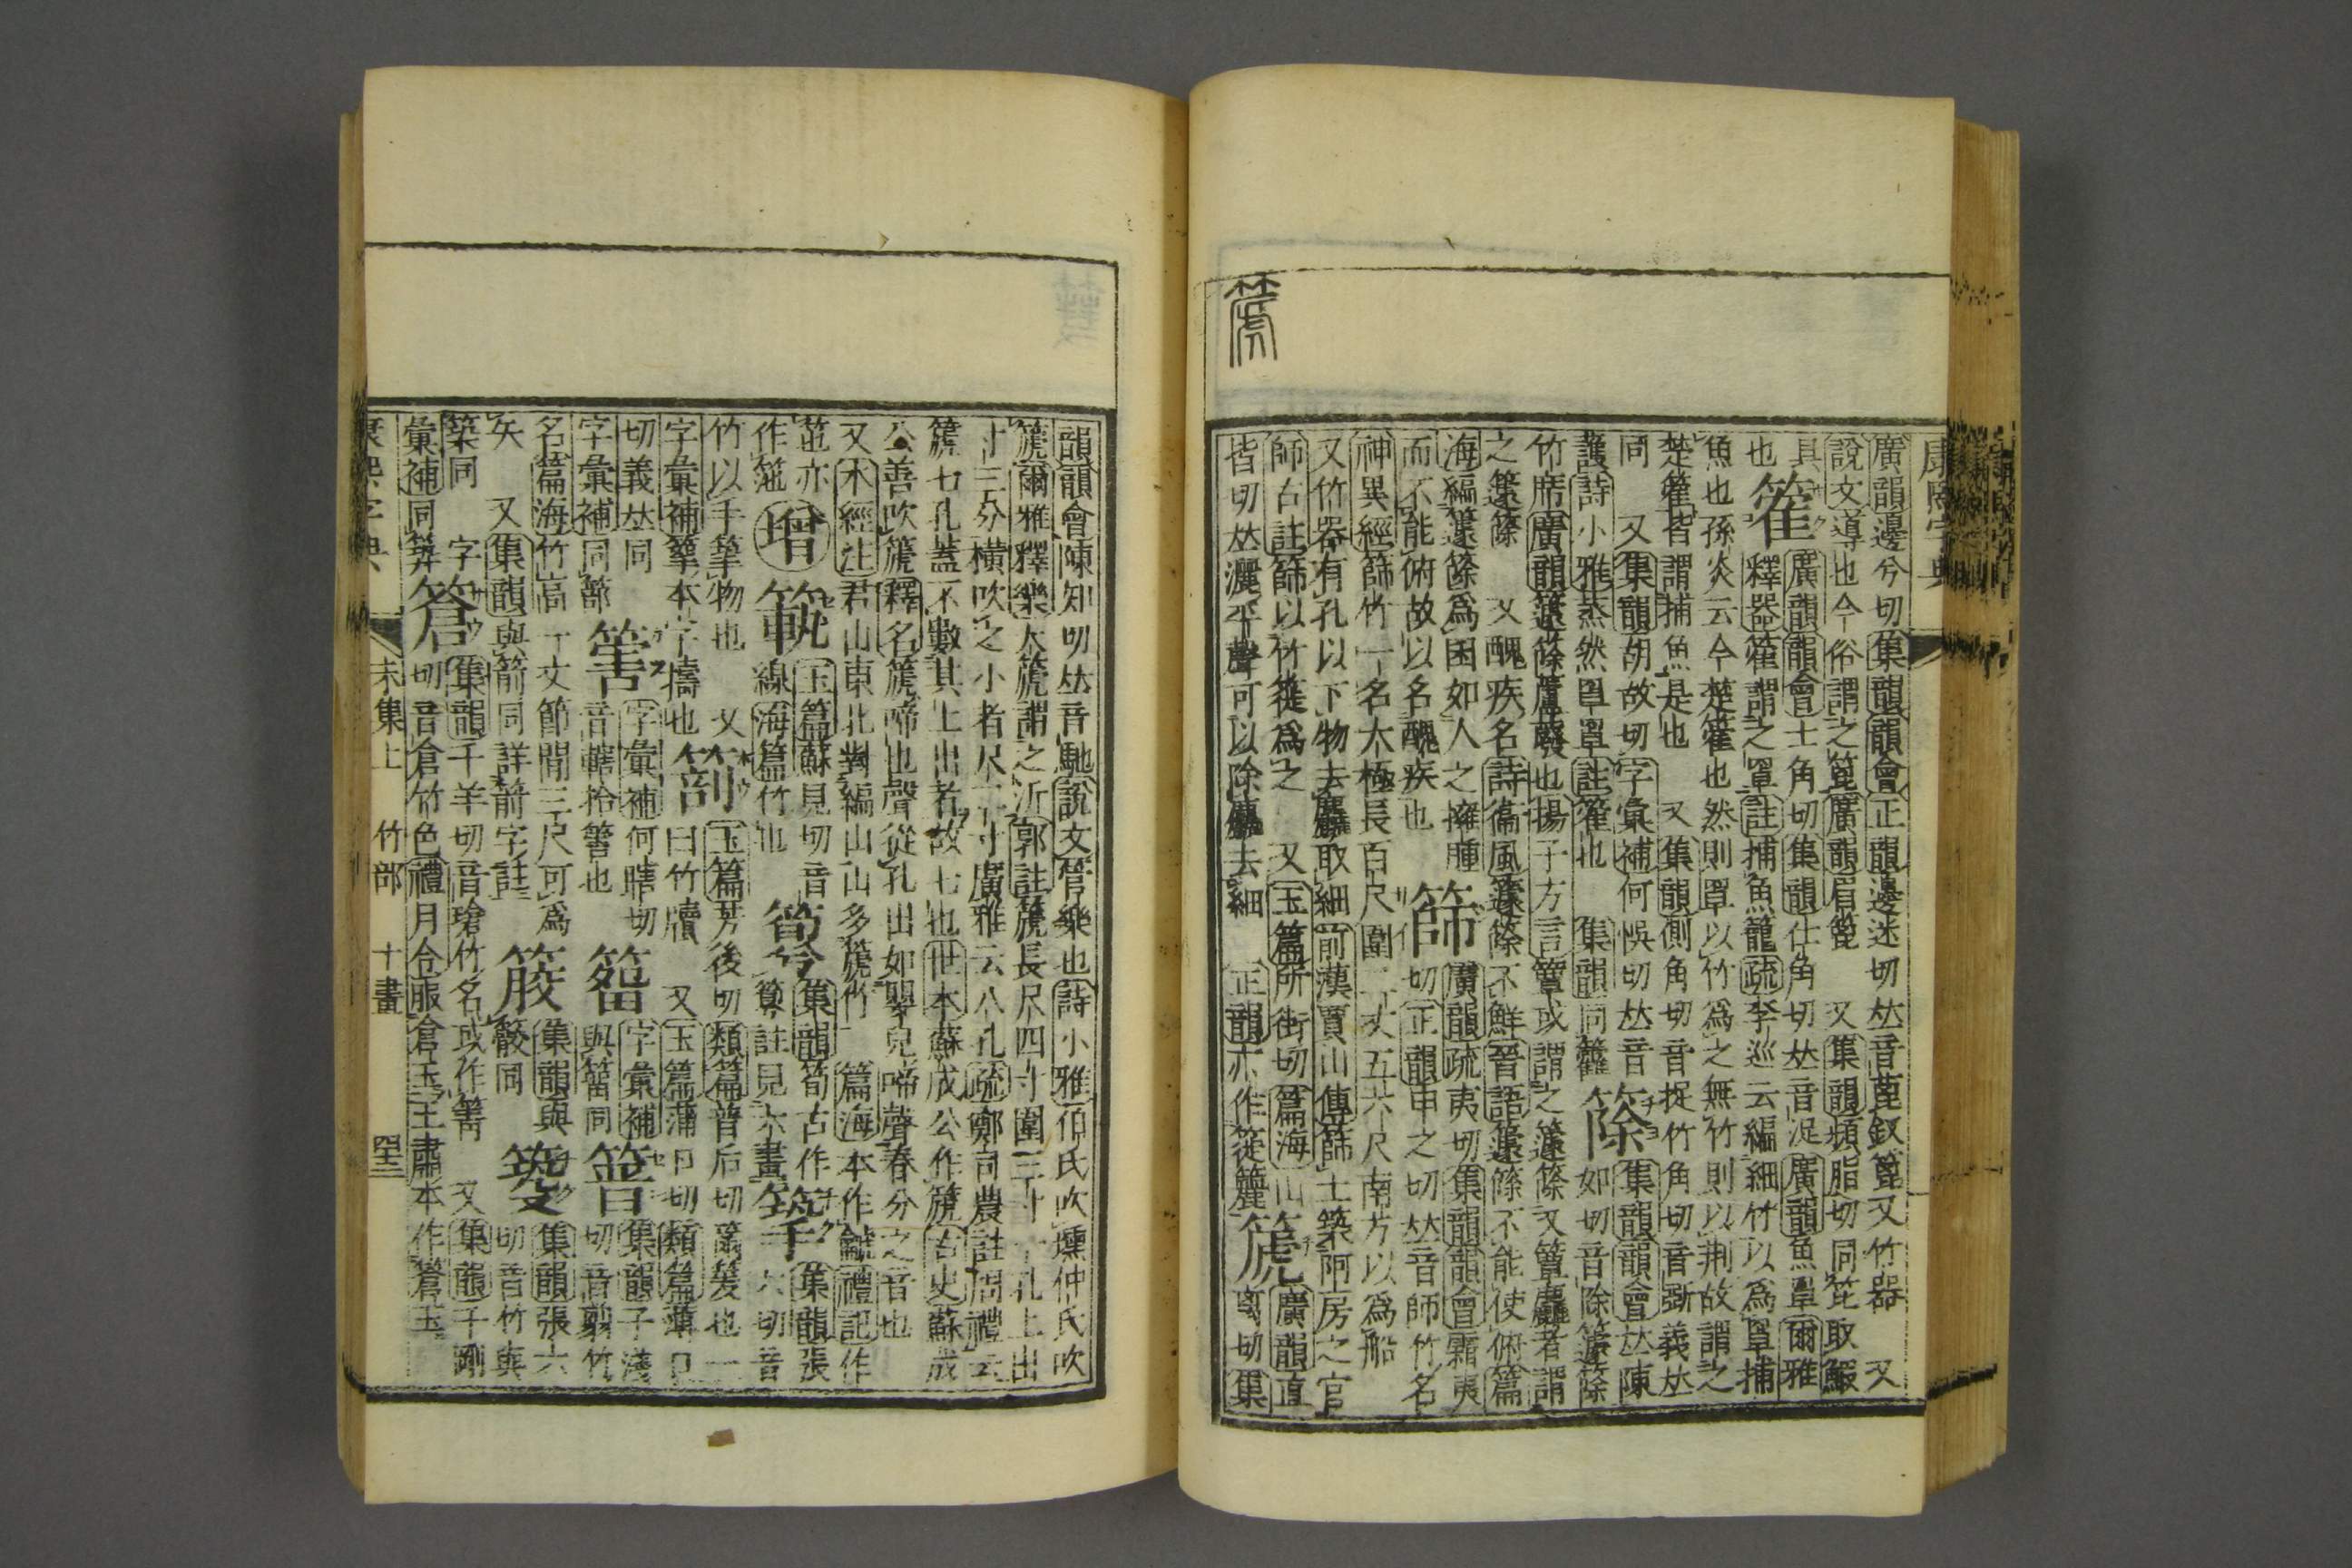 篪
廣韻邊兮切集韻韻會正韻邊迷切𠀤音𥱼釵篦又竹器 又
說文導也今俗謂之篦廣韻眉篦 又集韻頻脂切同笓取鰕
具 籗 廣韻韻會士角切集韻仕角切𠀤音浞廣韻魚罩爾雅
也 釋器籗謂之罩註捕魚籠疏李巡云編細竹以爲罩捕
魚也孫炎云今楚籗也然則罩以竹爲之無竹則以荆故謂之
楚籗皆謂捕魚是也 又集韻側角切音捉竹角切音斲義𠀤
同 又集韻胡故切字彙補何悞切𠀤音 篨 集韻韻會𠀤陳
護詩小雅烝然罩罩註籗也 集韻同籱 如切音除籧篨
竹席廣韻籧篨蘆䉬也揚子方言簟或謂之籧篨又簟麤者謂
之籧篨 又醜疾名詩衞風籧篨不鮮晉語籧篨不能使俯篇
海編籧篨爲囷如人之擁腫 篩 廣韻疏夷切集韻韻會霜夷
而不能俯故以名醜疾也 切正韻申之切𠀤音師竹名
神異經篩竹一名太極長百尺圍二丈五六尺南方以爲船
又竹器有孔以下物去麤取細前漢賈山傳篩土築阿房之宮
師古註篩以竹簁爲之 又玉篇所街切篇海山 篪 廣韻直
皆切𠀤灑平聲可以除麤去細 正韻亦作簁簏 离切集
韻韻會陳知切𠀤音馳說文管樂也詩小雅伯氏吹壎仲氏吹
篪爾雅釋樂大篪謂之沂郭註篪長尺四寸圍三寸一孔上出
寸三分橫吹之小者尺二寸廣雅云八孔疏鄭司農註周禮云
篪七孔蓋不數其上出者故七也世本蘇成公作篪古史蘇成
公善吹篪釋名篪啼也聲從孔出如嬰兒啼聲春分之音也
又木經注君山東北對編山山多篪竹 篇海本作龥禮記作
䇠亦 增 䈀 玉篇蘇見切音 筍 集韻筍古作 䇭 集韻張
竹以手䇭物也 又 䈏 玉篇芳後切類篇普后切䈏䈊也一
字彙補䇭本字擣也 曰竹牘 又玉篇蒲口切類篇薄口
切義𠀤同 字彙補何瞎切 字彙補 集韻子淺
字彙補同篰 䈑 音轄拾䈑也 與䈅同 切音翦竹
名篇海竹高一丈節間三尺可爲 集韻與 集韻張六
矢 又集韻與箭同詳前字註 骹同 切音竹與
築同 字 篬 集韻千羊切音瑲竹名或作箐 又集韻千剛
彙補同筭 切音倉竹色禮月令服倉玉王肅本作篬玉
康熙字典 未集上 竹部 十畫